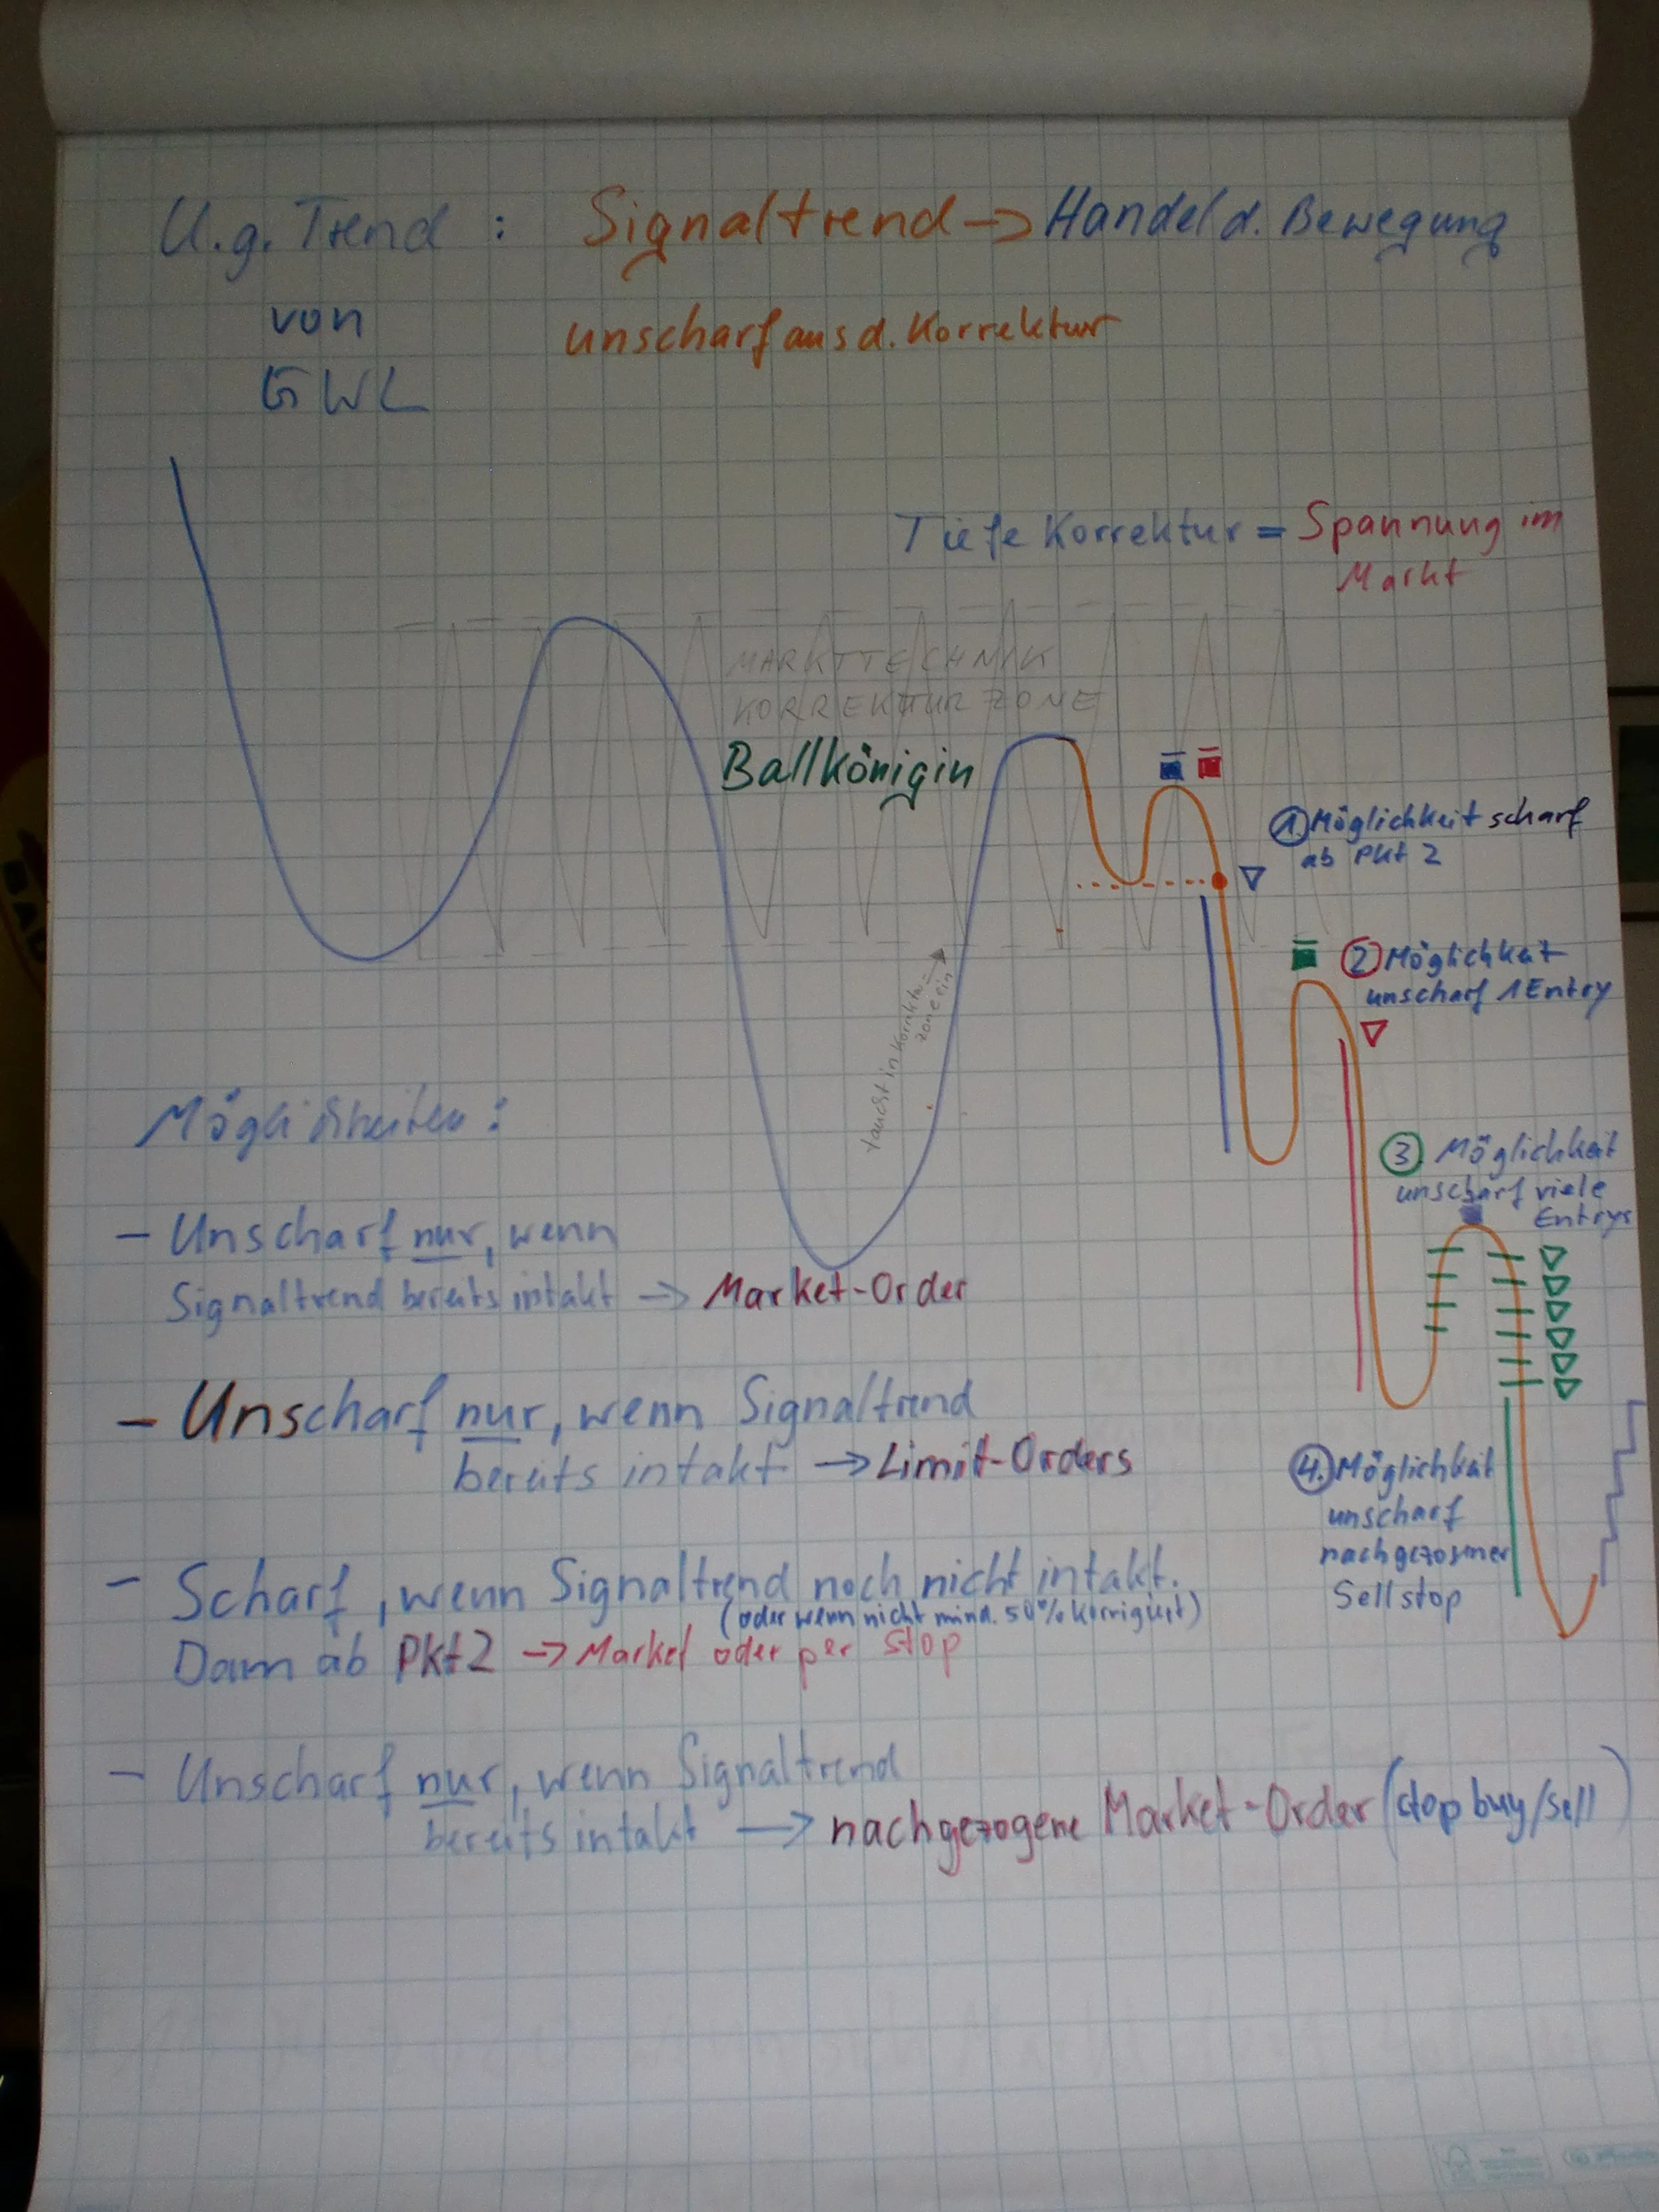 U.g. Trend : Signaltrend -> Handel d. Bewegung
von unscharf aus d. Korrektur
GWL
Tiefe Korrektur = Spannung im
Markt
MARKTTECHNIK
KORREKTUR ZONE
Ballkönigin
1. Möglichkeit scharf
ab Pkt 2
2 Möglichkeit
unscharf 1 Entry
taucht in Korrektur-
zone ein
3. Möglichkeit
unscharf viele
Entrys
4. Möglichkeit
unscharf
nachgezogner
Sellstop
Möglichkeiten :
- Unscharf nur, wenn
Signaltrend bereits intakt -> Market-Order
- Unscharf nur, wenn Signaltrend
bereits intakt -> Limit-Orders
- Scharf, wenn Signaltrend noch nicht intakt.
(oder wenn nicht mind. 50% korrigiert)
Dann ab Pkt2 -> Market oder per Stop
- Unscharf nur, wenn Signaltrend
bereits intakt -> nachgezogene Market-Order (stop buy/sell)